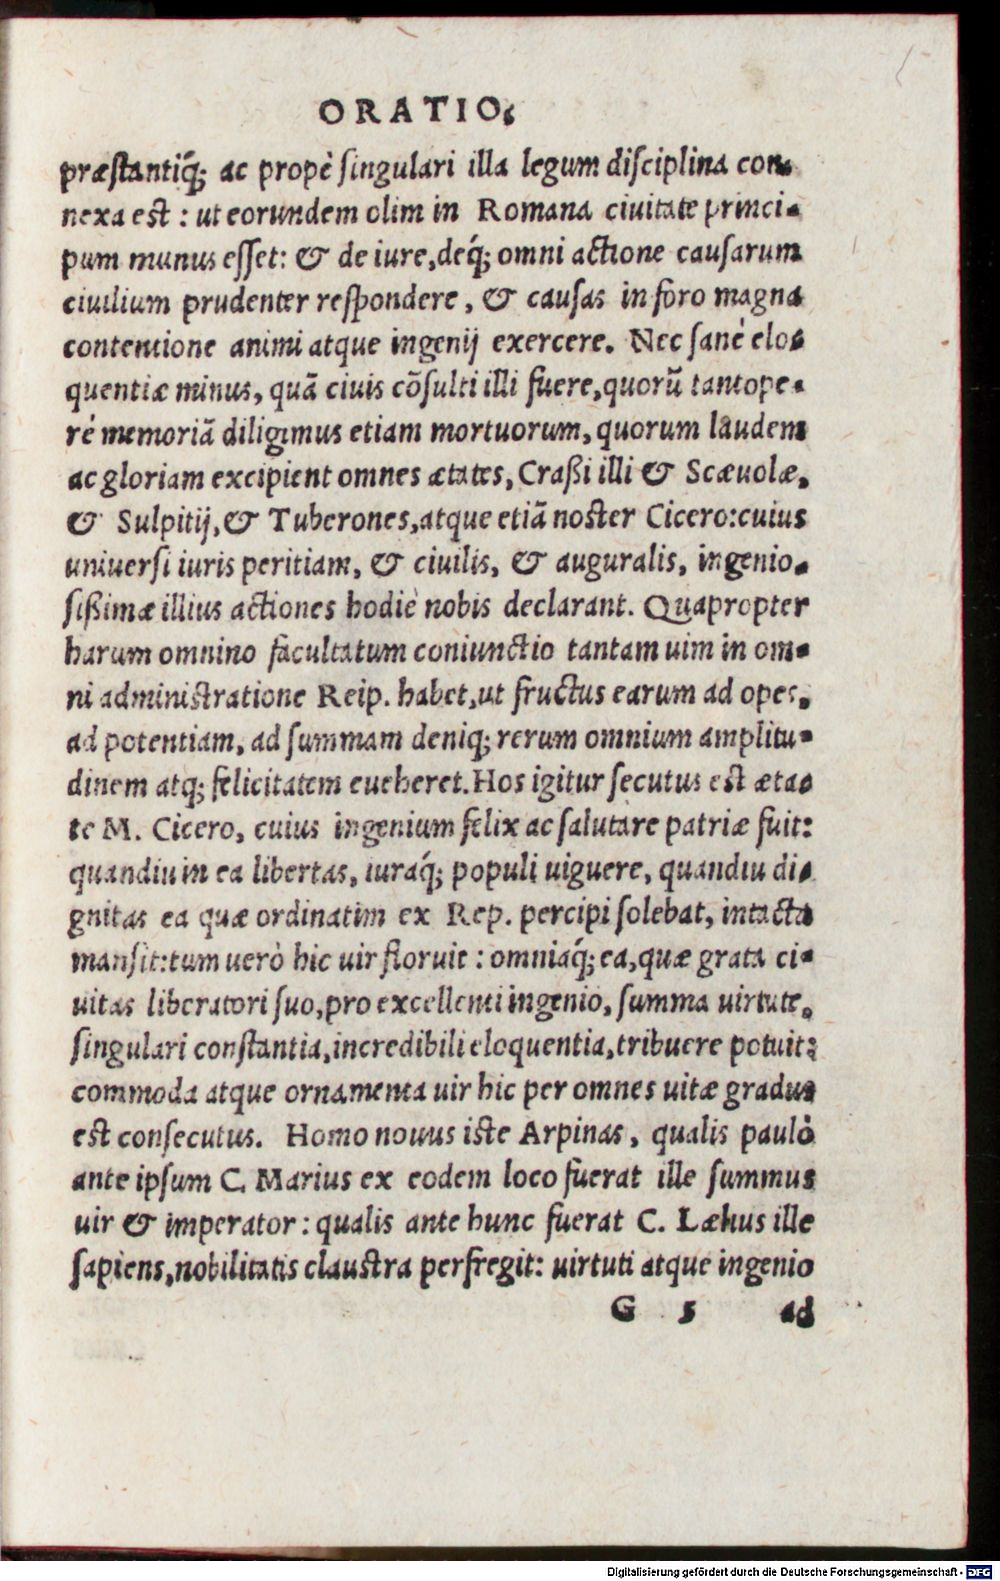 ORATIO.
præstantiq́; ac propè singulari illa legum disciplina con-
nexa est: ut eorundem olim in Romana ciuitate princi-
pum munus esset: & de iure, deq́; omni actione causarum
ciuilium prudenter respondere, & causas in foro magna
contentione animi atque ingenij exercere. Nec sanè elo-
quentiæ minus, quã ciuis cõsulti illi fuere, quorũ tantope-
rè memoriã diligimus etiam mortuorum, quorum laudem
ac gloriam excipient omnes ætates, Craßi illi & Scæuolæ,
& Sulpitij, & Tuberones, atque etiã noster Cicero: cuius
uniuersi iuris peritiam, & ciuilis, & auguralis, ingenio-
sißimæ illius actiones hodiè nobis declarant. Quapropter
harum omnino facultatum coniunctio tantam uim in om-
ni administratione Reip. habet, ut fructus earum ad opes,
ad potentiam, ad summam deniq; rerum omnium amplitu-
dinem atq; felicitatem eueheret. Hos igitur secutus est æta-
te M. Cicero, cuius ingenium felix ac salutare patriæ fuit:
quandiu in ea libertas, iuraq́; populi uiguere, quandiu di-
gnitas ea quæ ordinatim ex Rep. percipi solebat, intacta
mansit: tum uerò hic uir floruit: omniaq́; ea, quæ grata ci-
uitas liberatori suo, pro excellenti ingenio, summa uirtute,
singulari constantia, incredibili eloquentia, tribuere potuit;
commoda atque ornamenta uir hic per omnes uitæ gradus
est consecutus. Homo nouus iste Arpinas, qualis paulò
ante ipsum C. Marius ex eodem loco fuerat ille summus
uir & imperator: qualis ante hunc fuerat C. Lælius ille
sapiens, nobilitatis claustra perfregit: uirtuti atque ingenio
G 5 ad
Digitalisierung gefördert durch die Deutsche Forschungsgemeinschaft - DFG